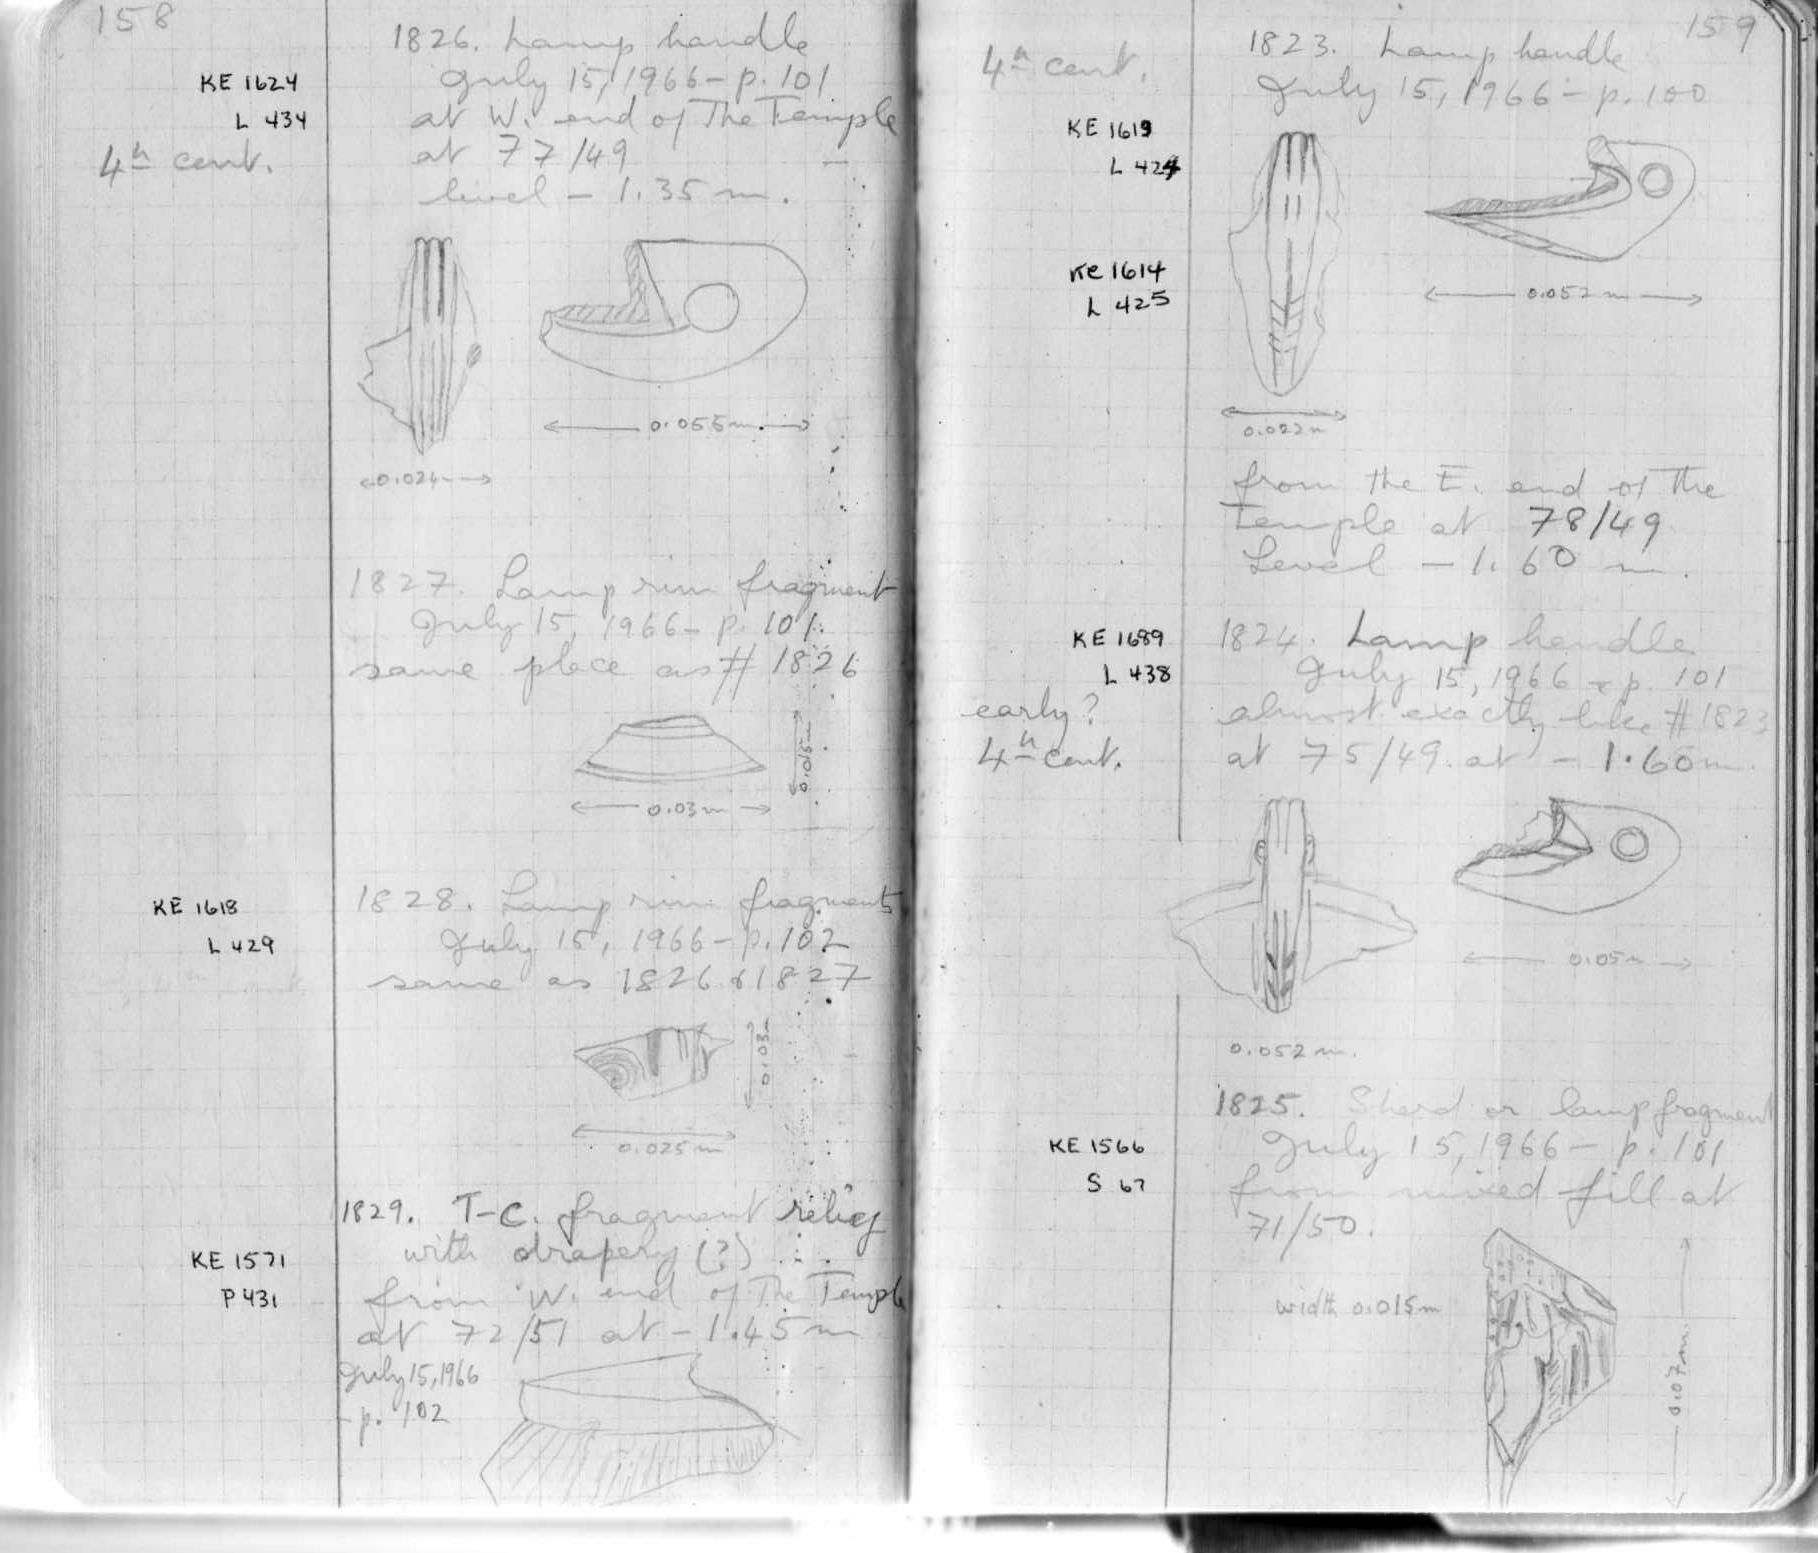 158
KE 1624
L 434
4th cent.
1826. Lamp handle
July 15, 1966 – p. 101
at W. end of The Temple
at 77/49
level – 1.35 m.
0.055 m.
0.024
1827. Lamp rim fragment
July 15, 1966 – p. 101.
same place as # 1826
0.015m
0.03 m
KE 1618
L 429
1828. Lamp rim fragments
July 15, 1966 – p. 102
same as 1826 & 1827
0.03m
0.025 m
KE 1571
P 431
1829. T-C. fragment relief
with drapery (?)
from W. end of The Temple
at 72/51 at – 1.45 m
July 15, 1966
– p. 102
159
4th cent.
KE 1619
L 424
KE 1614
L 425
1823. Lamp handle
July 15, 1966 – p. 100
0.052 m
0.022 m
from the E. end of The
Temple at 78/49
Level – 1.60 m.
KE 1689
L 438
early?
4th cent.
1824. Lamp handle
July 15, 1966 – p. 101
almost exactly like # 1823
at 75/49 at – 1.60 m.
0.05 m
0.052 m.
KE 1566
S 67
1825. Sherd or lamp fragment
July 15, 1966 – p. 101
from mixed fill at
71/50.
width 0.015 m
0.07 m.